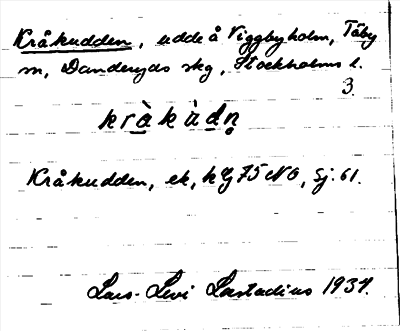 Kråkudden, udde å Viggbyholm, Täby
sn, Danderyds skg, Stockholms l.
3.
kràkùdn̥
Kråkudden, ek, hgf 75 NO, Sj: 61.
Lars-Levi Læstadius 1934.